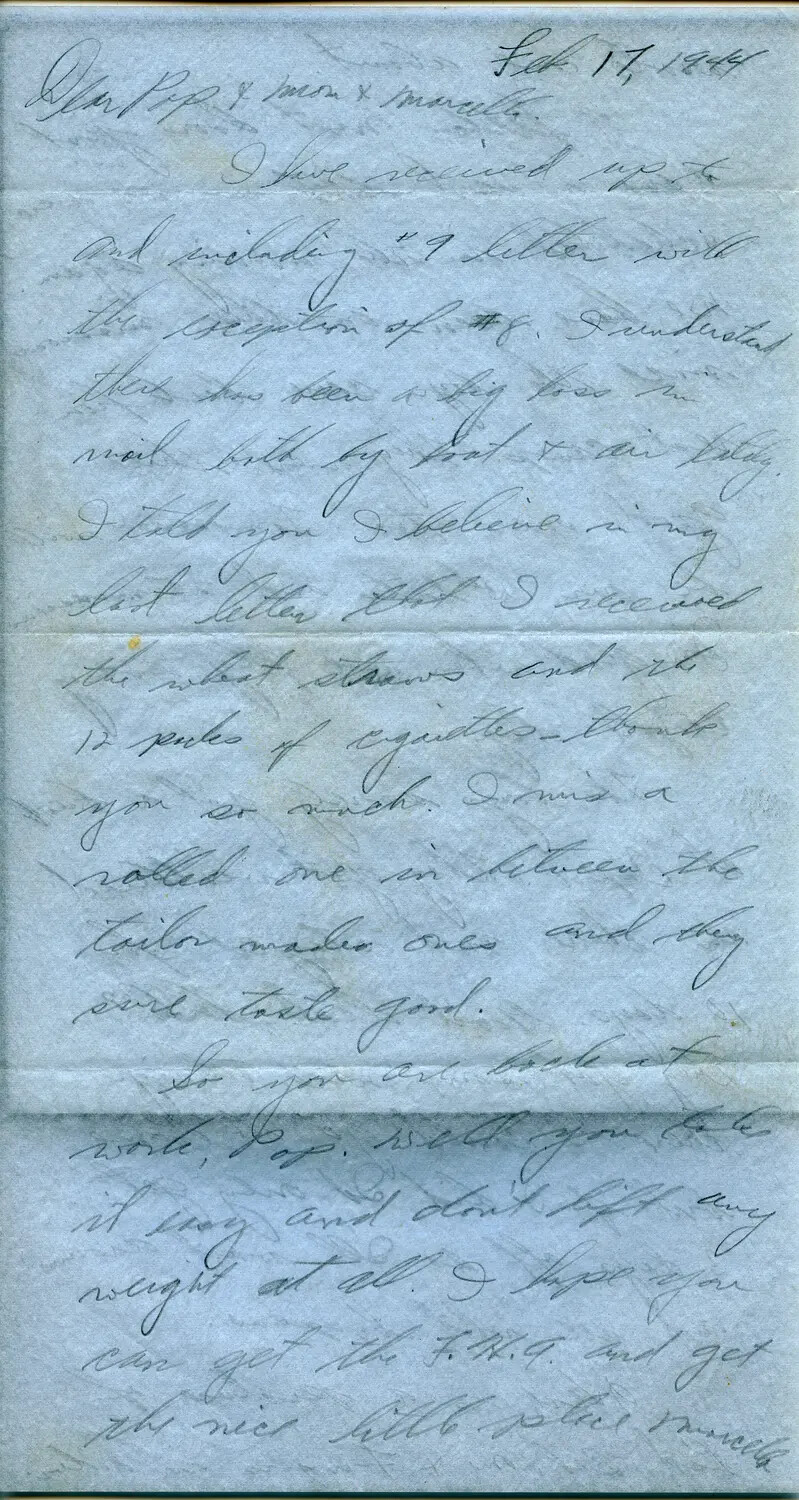 Feb 17, 1944
Dear Pop & Mom & Marcella.
I have received up to
and including #9 letter with
the exception of #8. I understand
there has been a big loss in
mail both by boat & air lately.
I told you I believe in my
last letter that I received
the wheat straws and the
12 packs of cigarettes - thank
you so much. I mix a
rolled one in between the
tailor mades ones and they
sure taste good.
So you are back at
work, Pop. Well you take
it easy and don't lift any
weight at all. I hope you
can get the F.H.A. and get
the nice little place Marcella